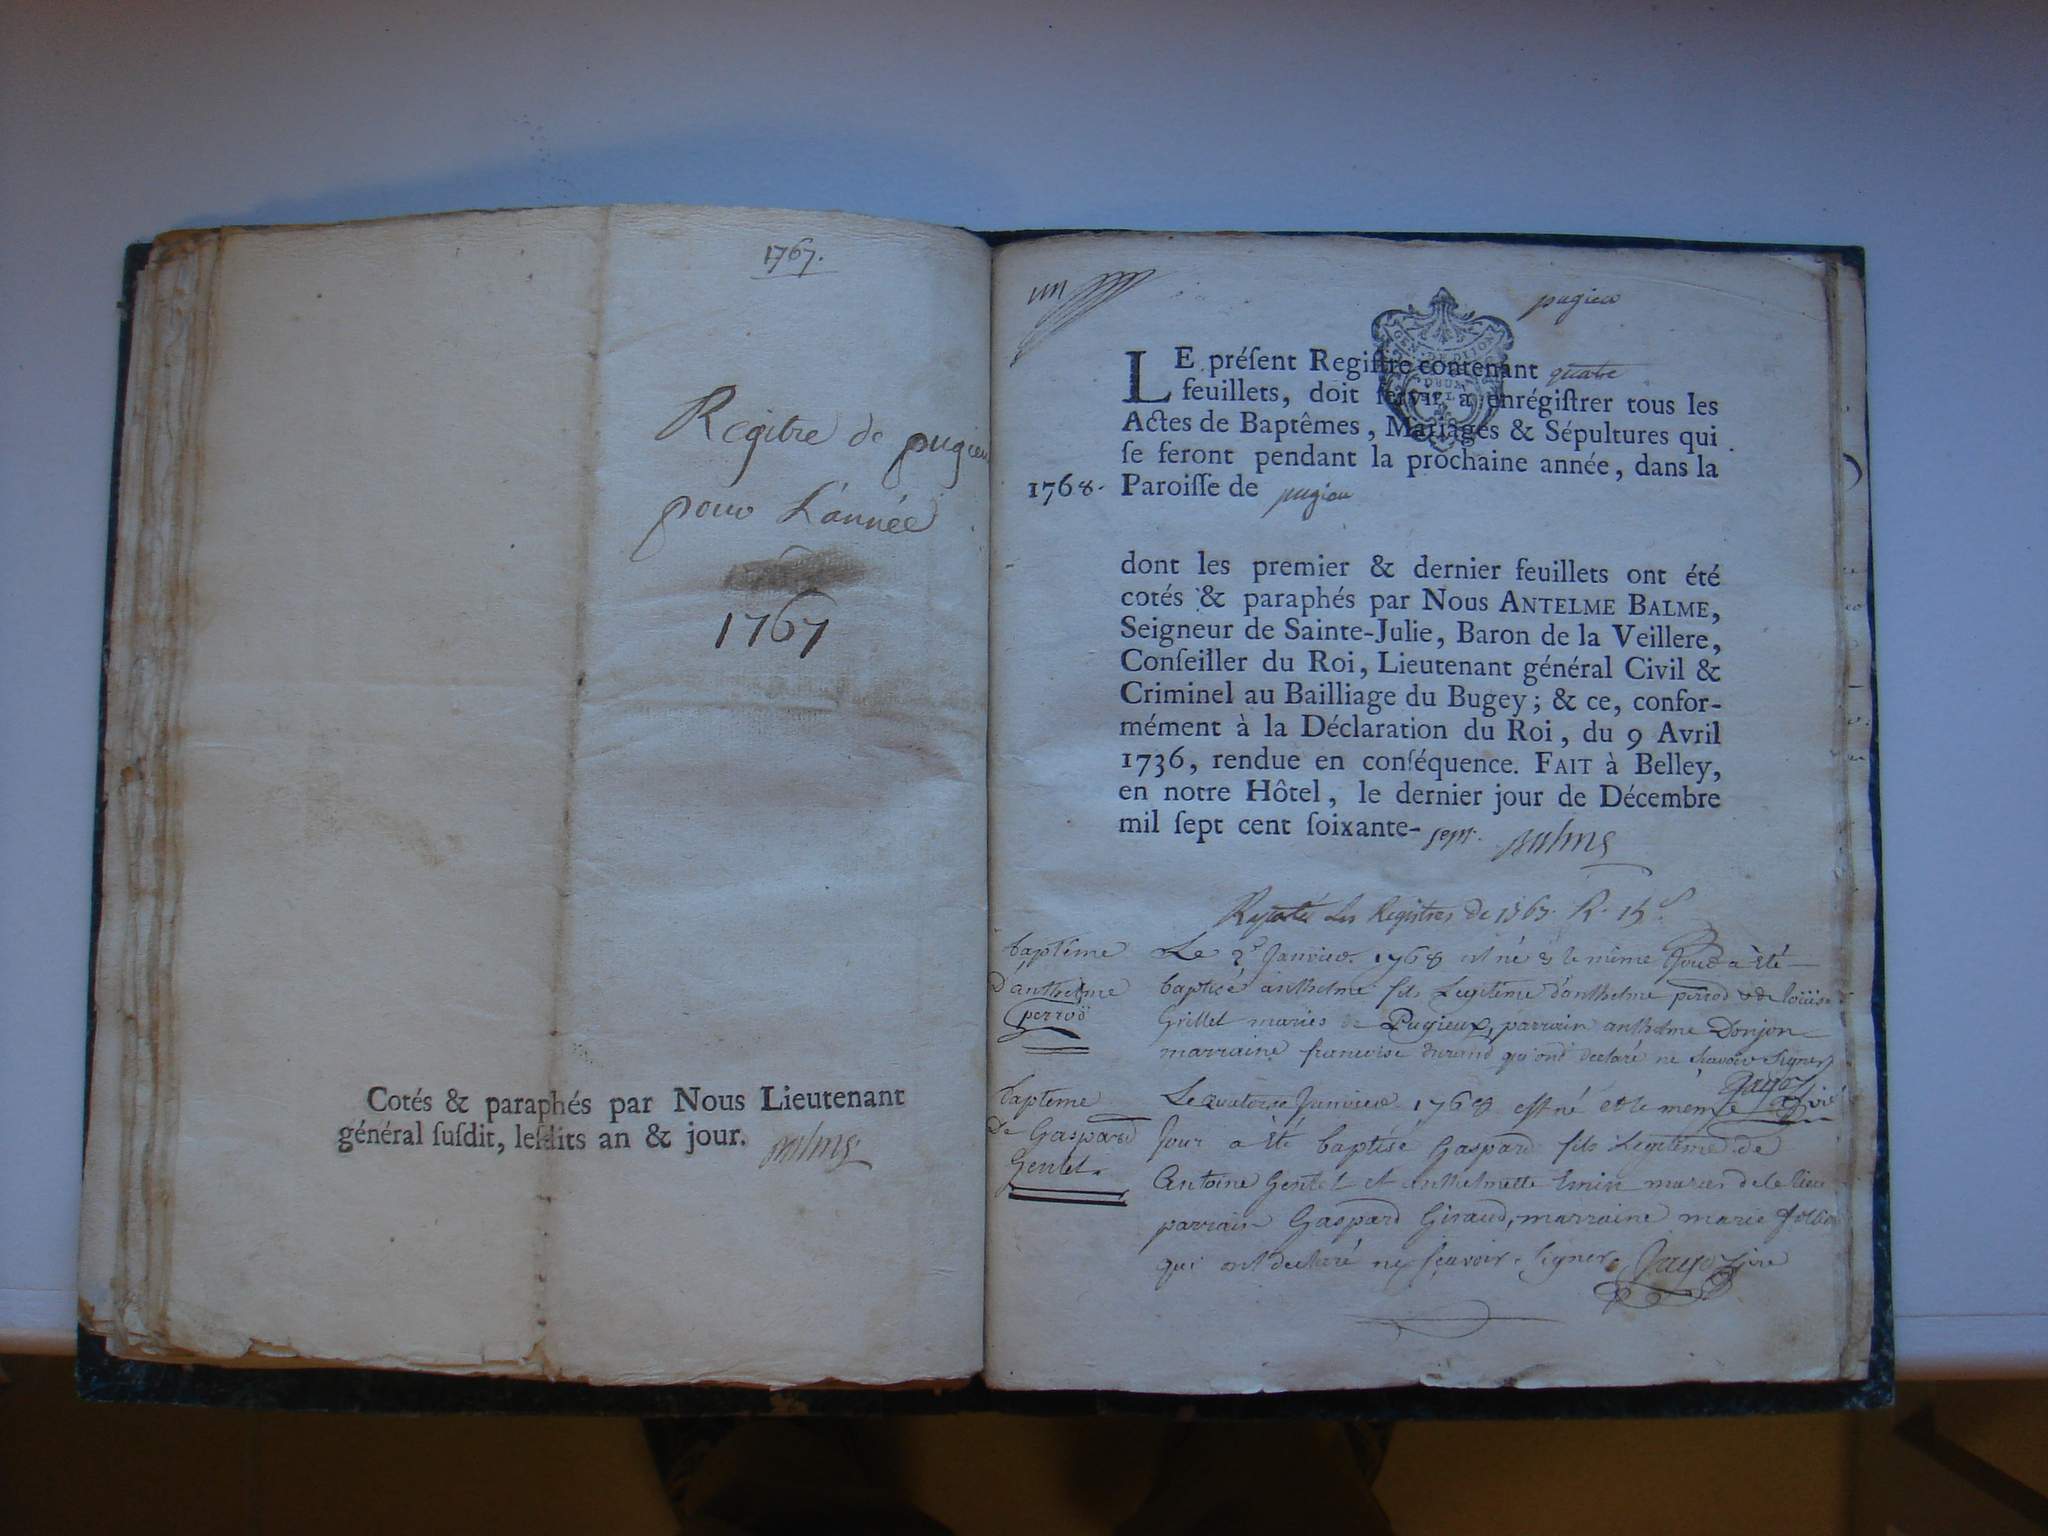 1767.
Regitre de pugieu
pour L'année
1767
Cotés & paraphés par Nous Lieutenant
général ſuſdit, leſdits an & jour. Balme
un
pugieu
GEN. DE DIJON
LE préſent Regiſtre contenant quatre
feuillets, doit ſervir à enrégiſtrer tous les
Actes de Baptêmes, Mariages & Sépultures qui
ſe feront pendant la prochaine année, dans la
1768. Paroiſſe de pugieu
dont les premier & dernier feuillets ont été
cotés & paraphés par Nous ANTELME BALME,
Seigneur de Sainte-Julie, Baron de la Veillere,
Conſeiller du Roi, Lieutenant général Civil &
Criminel au Bailliage du Bugey; & ce, confor-
mément à la Déclaration du Roi, du 9 Avril
1736, rendue en conſéquence. FAIT à Belley,
en notre Hôtel, le dernier jour de Décembre
mil ſept cent ſoixante-sept. Balme
Les Registres de 1767. R. 15ˢ
baptême
D'anthelme
perrod
Le 2ᵉ Janvier 1768 est né & le même Jour a été
baptisé anthelme fils Legitime d'anthelme perrod & de Loüise
Grillet mariés de Pugieux, parrain anthelme Donjon
marraine francoise durand qui ont declaré ne sçavoir signer
bapteme
De Gaspard
Gentet.
Le quatorze Janvier 1768 est né et le même
Jour a été baptisé Gaspard fils Legitime de
Antoine Gentet et anthelmette Emin mariés de ce lieu
parrain Gaspard Giraud, marraine marie
qui ont declaré ne sçavoir signer.